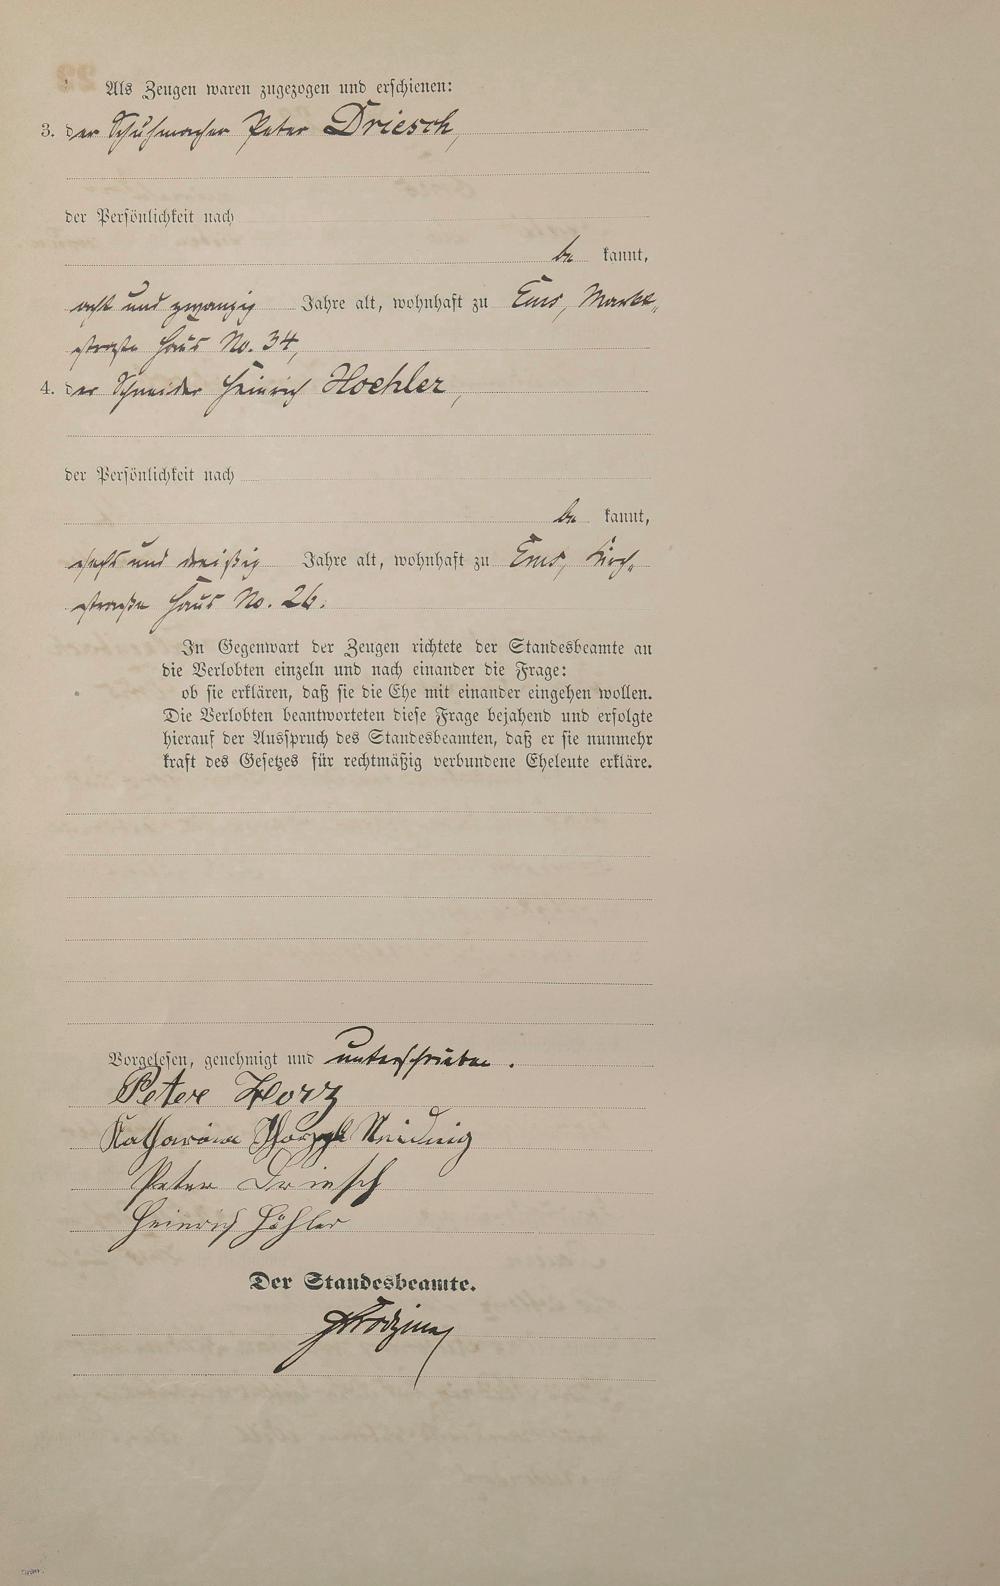 Als Zeugen waren zugezogen und erschienen:
3. der Schuhmacher Peter Driesch,
der Persönlichkeit nach
be kannt,
acht und zwanzig Jahre alt, wohnhaft zu Ems, Markt-
straße Haus No. 34,
4. der Schneider Heinrich Hoehler,
der Persönlichkeit nach
be kannt,
sechs und dreißig Jahre alt, wohnhaft zu Ems, Kirch-
straße Haus No. 26.
In Gegenwart der Zeugen richtete der Standesbeamte an
die Verlobten einzeln und nach einander die Frage:
ob sie erklären, daß sie die Ehe mit einander eingehen wollen.
Die Verlobten beantworteten diese Frage bejahend und erfolgte
hierauf der Ausspruch des Standesbeamten, daß er sie nunmehr
kraft des Gesetzes für rechtmäßig verbundene Eheleute erkläre.
Vorgelesen, genehmigt und unterschrieben.
Peter Horz
Katharina Neidnig
Peter Driesch
Heinrich Höhler
Der Standesbeamte.